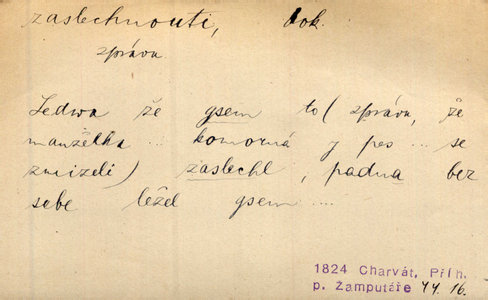 zaslechnouti, dok.
zpráva
Ledwa že gsem to ( zpráva, že
manželka ... komorná y pes ... se
zmizeli ) zaslechl, padna bez
sebe ležel gsem ....
1824 Charvát, Příh.
p. Zamputáře 44. 16.